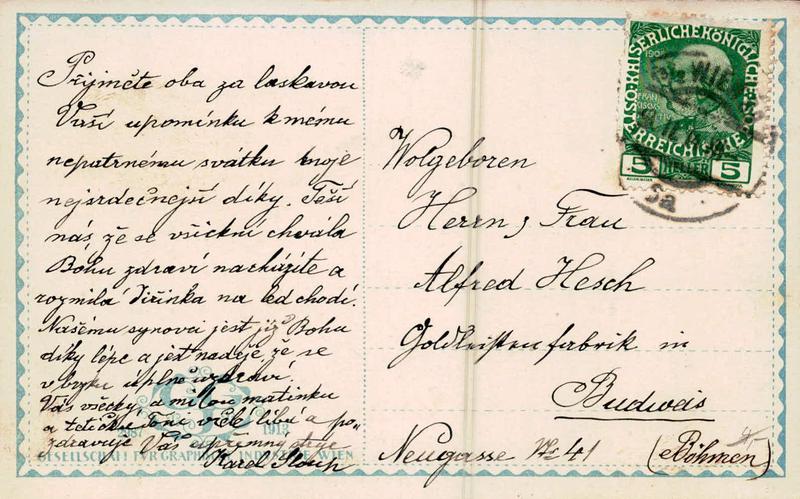 Přijměte oba za laskavou
Vaší upomínku k mému
nepatrnému svátku moje
nejsrdečnejsí díky. Těší
nás, že se všickni chvála
Bohu zdraví nacházíte a
rozmilá Jiřinka na led chodí.
Našému synovi jest již Bohu
díky lépe a jest naděje že se
v brzku úplně uzdraví.
Vás všecky, a milou matinku
a tetičku Toni vřele líbá a po-
zdravuje Váš upřimný strýc
Karel
1912
GESELLSCHAFT FÜR GRAPHISCHE INDUSTRIE WIEN
KAISERLICHE KÖNIGLICHE ÖSTERREICHISCHE
5 HELLER 5
WIEN
Wolgeboren
Herrn, Frau
Alfred Hesch
Goldleistenfabrik in
Budweis
Neugasse № 41 (Böhmen)